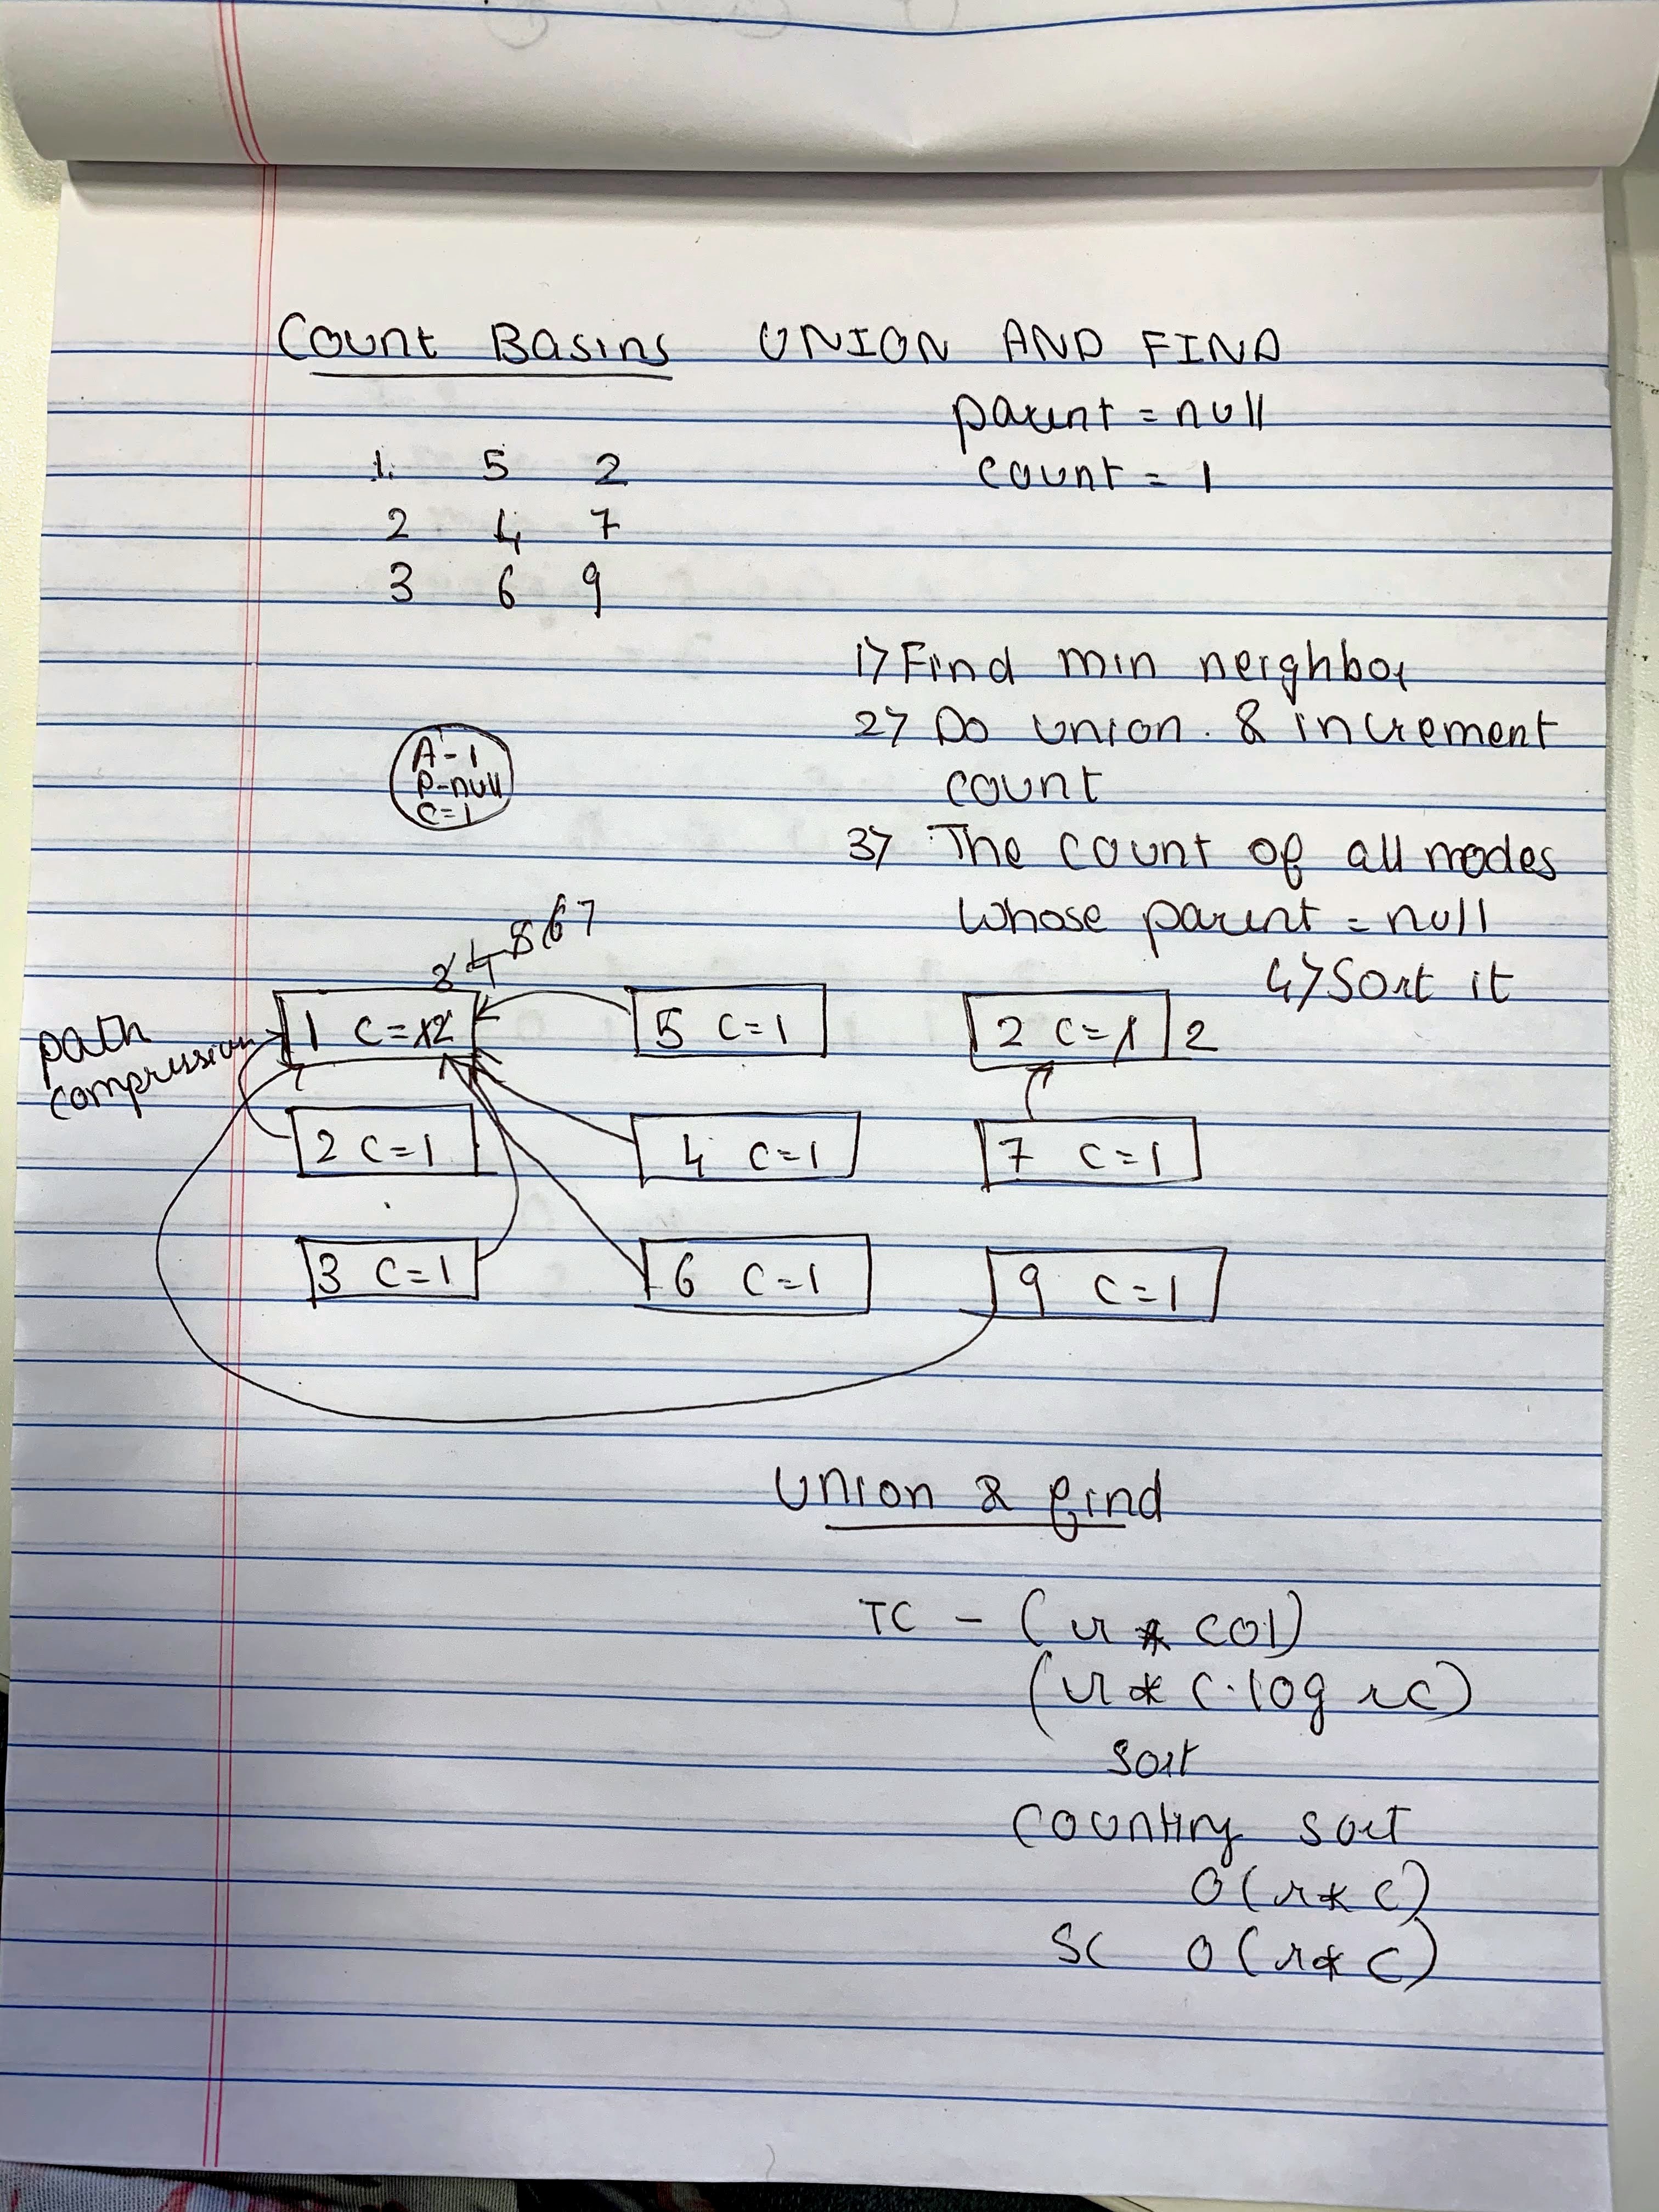 Count Basins UNION AND FIND
parent = null
count = 1
1 5 2
2 4 7
3 6 9
1) Find min neighbor
2) Do union & increment
count
3) The count of all nodes
whose parent = null
4) Sort it
A-1
P-null
C=1
3 4 5 6 7
path
compression
1 C=12 5 C=1 2 C=1 2
2 C=1 4 C=1 7 C=1
3 C=1 6 C=1 9 C=1
Union & find
TC - (r * col)
(r * c.log rc)
Sort
Counting sort
O(r*c)
SC O(r*c)